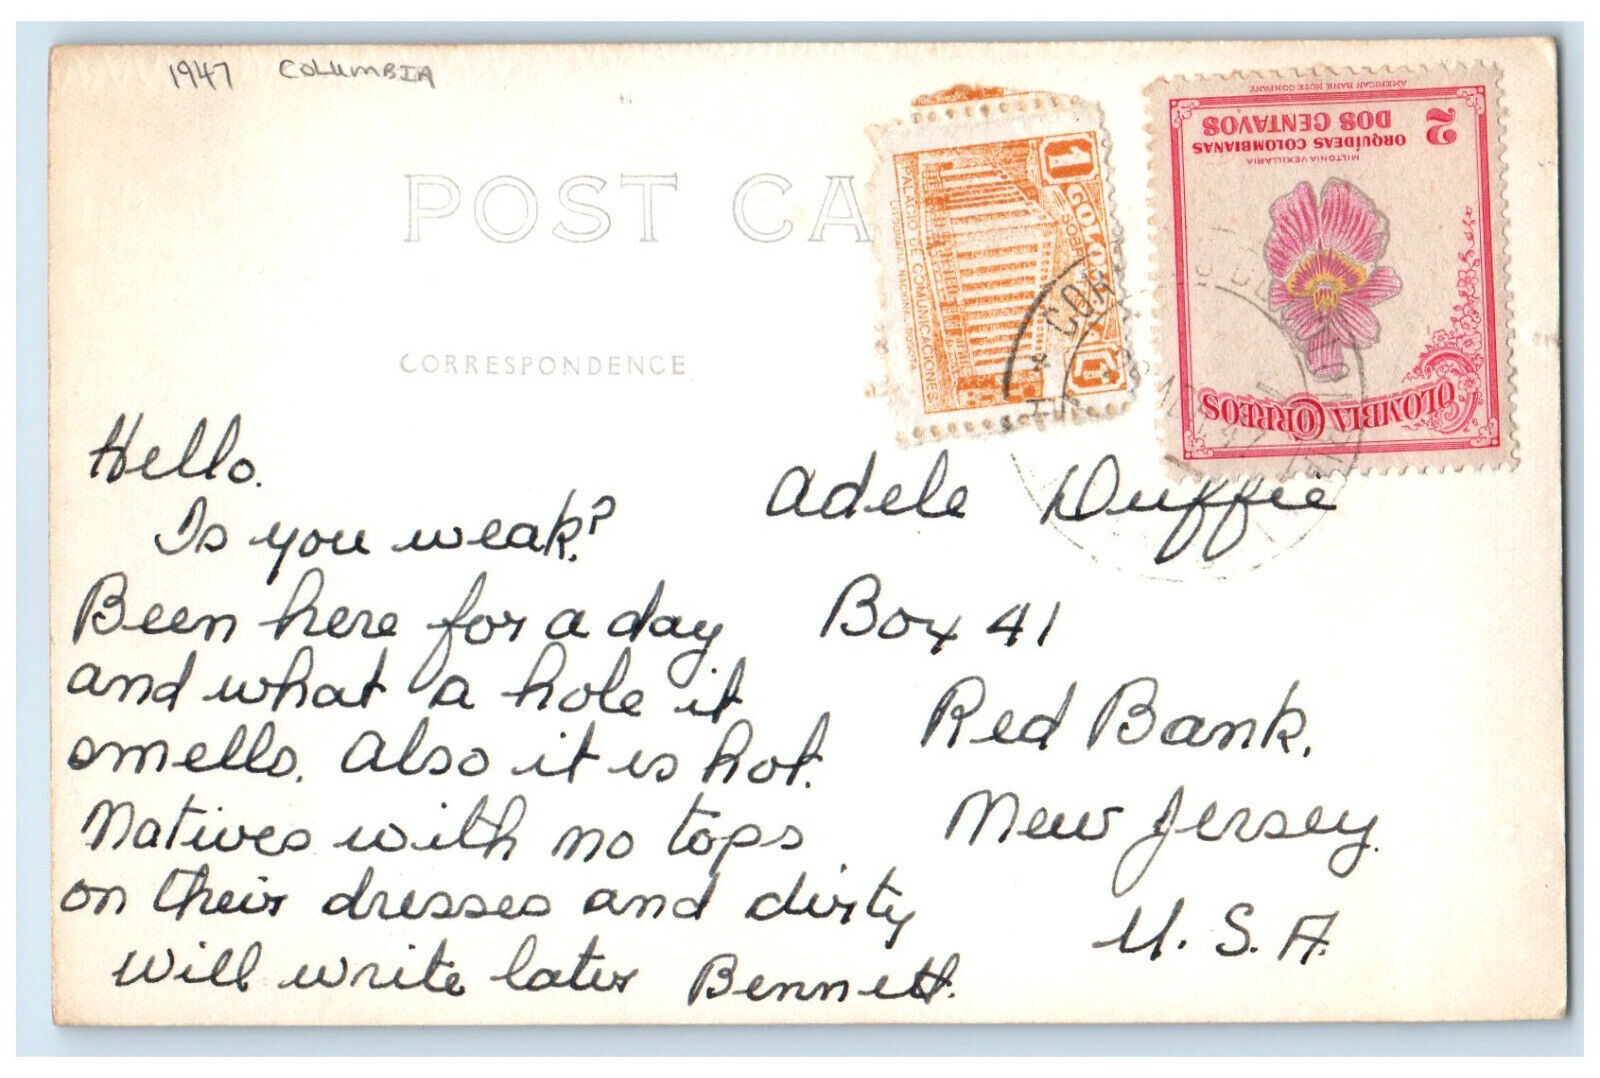 1947 COLUMBIA
POST CA
CORRESPONDENCE
1
COLO
SOBR
PALACIO DE COMUNICACIONES
AMERICAN BANK NOTE COMPANY.
2
DOS CENTAVOS
ORQUÍDEAS COLOMBIANAS
MILTONIA VEXILLARIA
COLOMBIA CORREOS
Hello.
Is you weak?
Been here for a day
and what a hole it
smells. Also it is hot.
Natives with no tops
on their dresses and dirty
will write later Bennett.
Adele Duffie
Box 41
Red Bank,
New Jersey.
U. S. A.